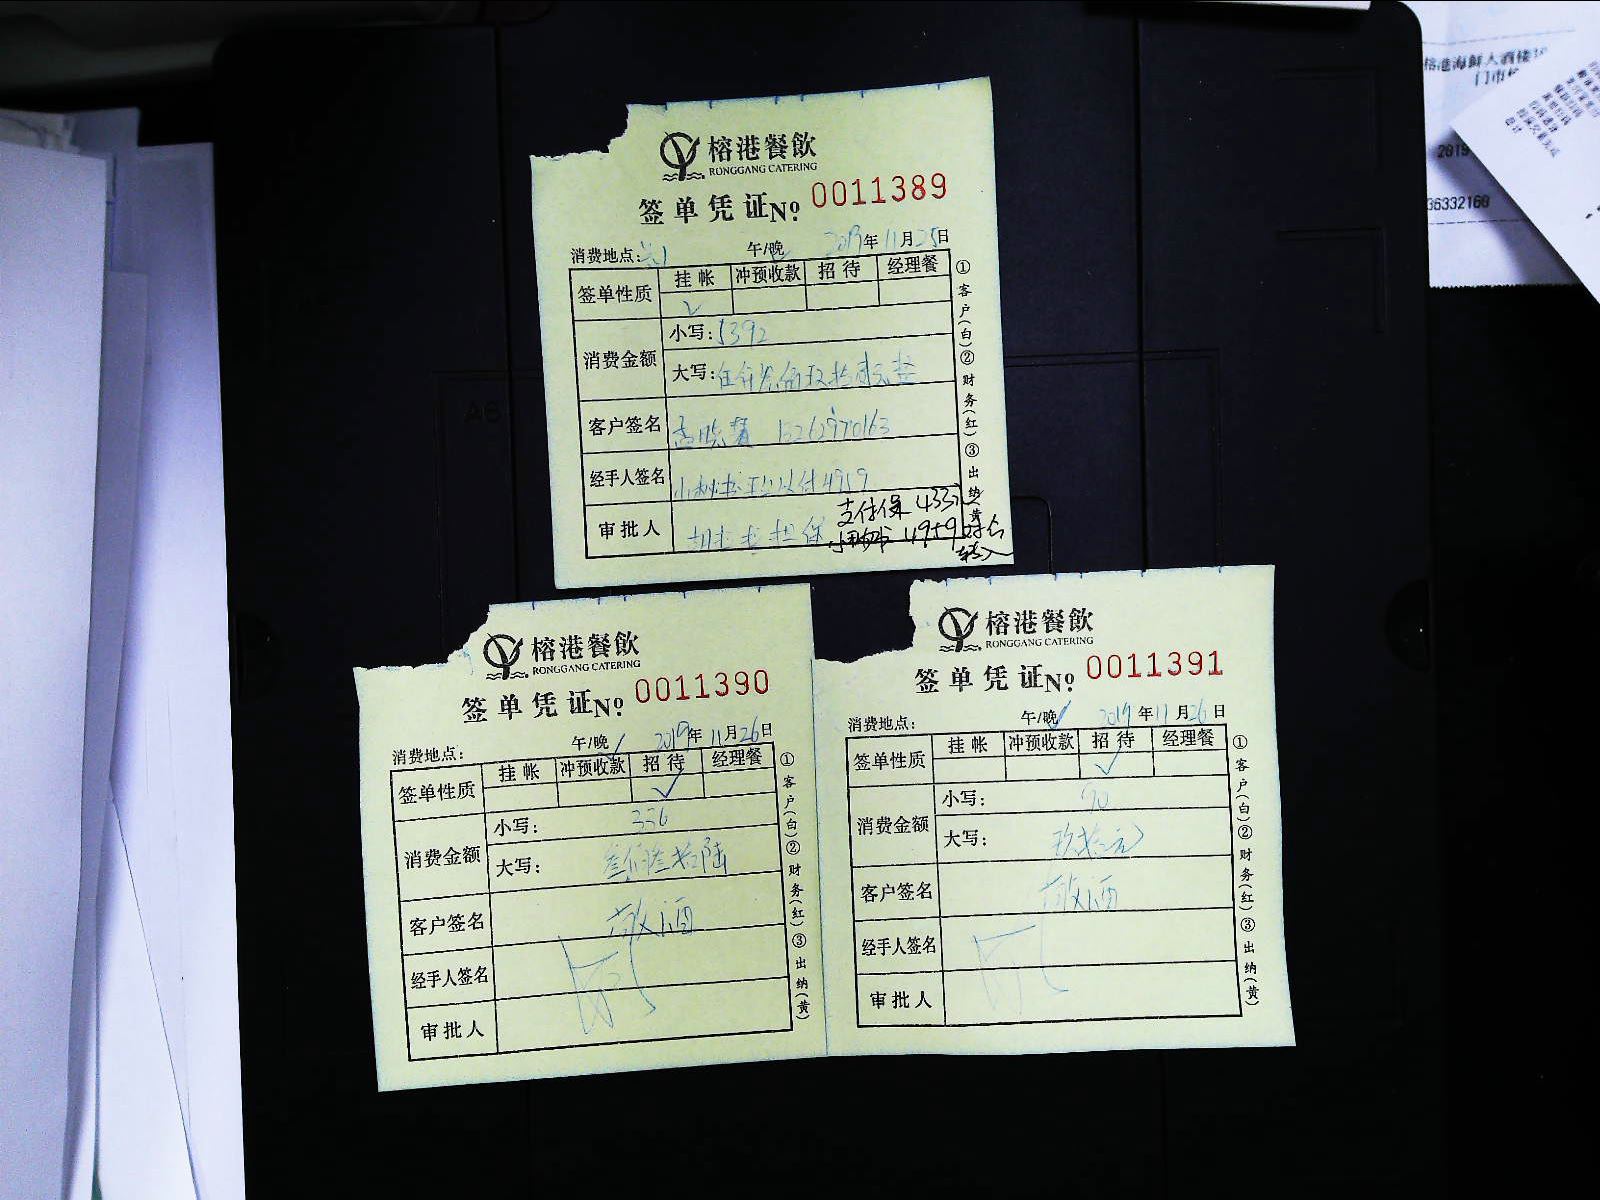 榕港餐飲
RONGGANG CATERING
签单凭证No. 0011389
消费地点: 午/晚 2019年11月25日
签单性质 挂帐 冲预收款 招待 经理餐
✓
消费金额 小写: 5392
大写: 伍仟叁佰玖拾贰元整
客户签名
经手人签名 4959
支付保 433
审批人 担保 4959
转入
①客户(白)②财务(红)③出纳(黄)
榕港餐飲
RONGGANG CATERING
签单凭证No. 0011390
消费地点: 午/晚✓ 2019年11月26日
签单性质 挂帐 冲预收款 招待 经理餐
✓
消费金额 小写: 336
大写: 叁佰叁拾陆
客户签名 敬酒
经手人签名
审批人
①客户(白)②财务(红)③出纳(黄)
榕港餐飲
RONGGANG CATERING
签单凭证No. 0011391
消费地点: 午/晚✓ 2019年11月26日
签单性质 挂帐 冲预收款 招待 经理餐
✓
消费金额 小写: 90
大写: 玖拾元
客户签名 敬酒
经手人签名
审批人
①客户(白)②财务(红)③出纳(黄)
榕港海鲜大酒楼
门市
2019
36332160
A6